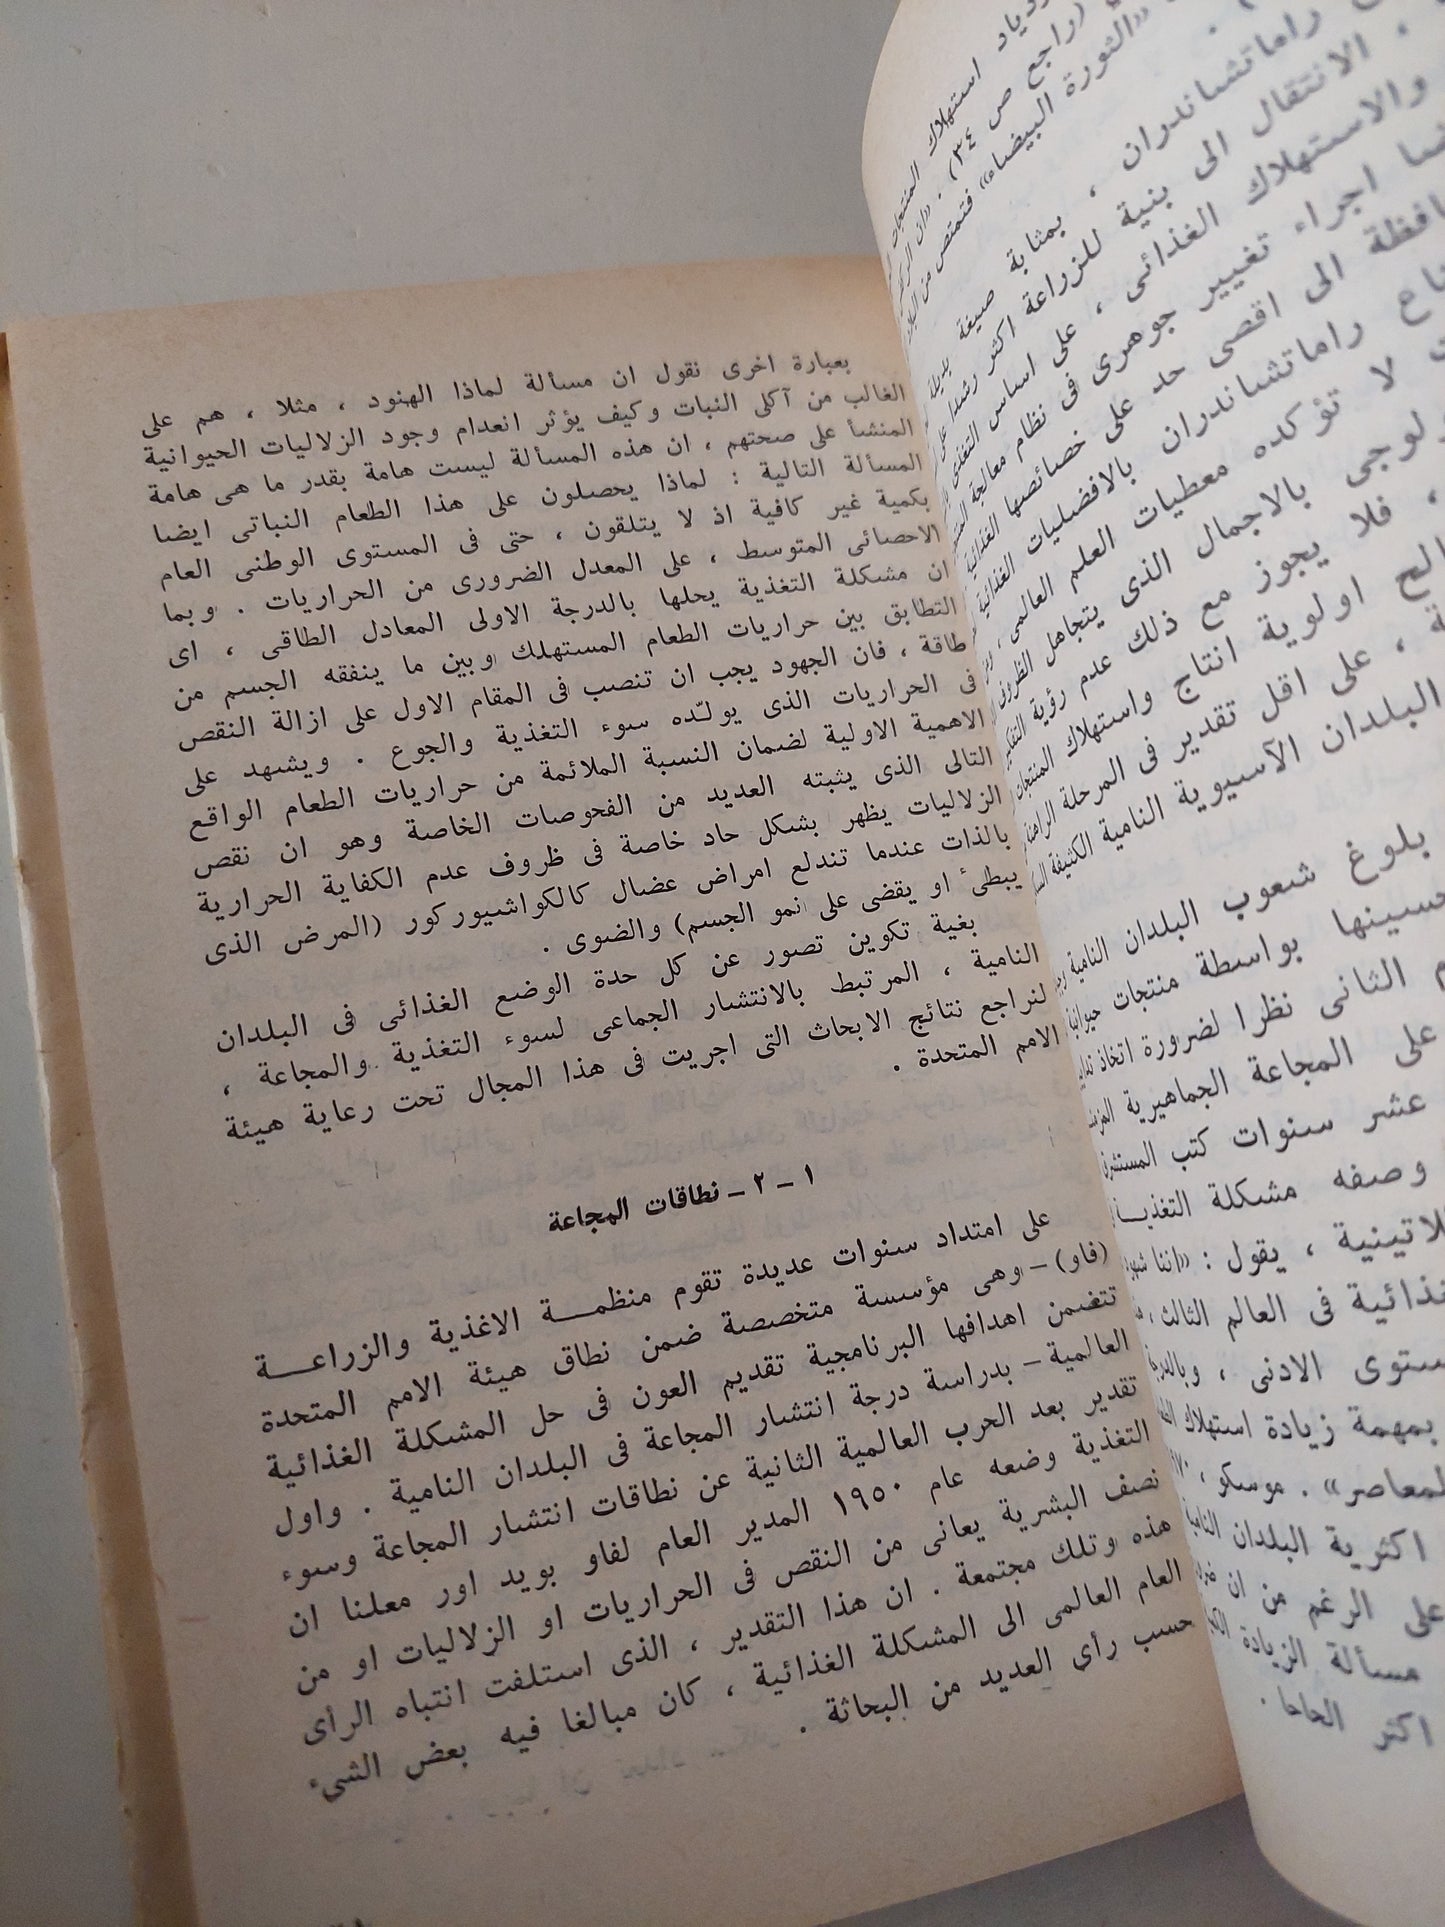 بعبارة اخرى نقول ان مسألة لماذا الهنود ، مثلا ، هم على
الغالب من آكلى النبات وكيف يؤثر انعدام وجود الزلاليات الحيوانية
المنشأ على صحتهم ، ان هذه المسألة ليست هامة بقدر ما هى هامة
المسألة التالية : لماذا يحصلون على هذا الطعام النباتى ايضا
بكمية غير كافية اذ لا يتلقون ، حتى فى المستوى الوطنى العام
الاحصائى المتوسط ، على المعدل الضرورى من الحراريات . وبما
ان مشكلة التغذية يحلها بالدرجة الاولى المعادل الطاقى ، اى
التطابق بين حراريات الطعام المستهلك وبين ما ينفقه الجسم من
طاقة ، فان الجهود يجب ان تنصب فى المقام الاول على ازالة النقص
فى الحراريات الذى يولّده سوء التغذية والجوع . ويشهد على
الاهمية الاولية لضمان النسبة الملائمة من حراريات الطعام الواقع
التالى الذى يثبته العديد من الفحوصات الخاصة وهو ان نقص
الزلاليات يظهر بشكل حاد خاصة فى ظروف عدم الكفاية الحرارية
بالذات عندما تندلع امراض عضال كالكواشيوركور (المرض الذى
يبطىء او يقضى على نمو الجسم) والضوى .
بغية تكوين تصور عن كل حدة الوضع الغذائى فى البلدان
النامية ، المرتبط بالانتشار الجماعى لسوء التغذية والمجاعة ،
لنراجع نتائج الابحاث التى اجريت فى هذا المجال تحت رعاية هيئة
الامم المتحدة .
١ – ٢ – نطاقات المجاعة
على امتداد سنوات عديدة تقوم منظمة الاغذية والزراعة
(فاو) – وهى مؤسسة متخصصة ضمن نطاق هيئة الامم المتحدة
تتضمن اهدافها البرنامجية تقديم العون فى حل المشكلة الغذائية
العالمية – بدراسة درجة انتشار المجاعة فى البلدان النامية . واول
تقدير بعد الحرب العالمية الثانية عن نطاقات انتشار المجاعة وسوء
التغذية وضعه عام ١٩٥٠ المدير العام لفاو بويد اور معلنا ان
نصف البشرية يعانى من النقص فى الحراريات او الزلاليات او من
هذه وتلك مجتمعة . ان هذا التقدير ، الذى استلفت انتباه الرأى
العام العالمى الى المشكلة الغذائية ، كان مبالغا فيه بعض الشىء
حسب رأى العديد من البحاثة .
استهلاك المنتجات
(راجع ص ٣٤) .
«الثورة البيضاء» فتمتص من
راماتشاندران ، بمثابة صيغة بديلة
، الانتقال الى بنية للزراعة اكثر رشدا على
والاستهلاك الغذائى ، على اساس التغذى
اجراء تغيير جوهرى فى نظام معالجة
الى اقصى حد على خصائصها الغذائية
راماتشاندران بالافضليات الغذائية
لا تؤكده معطيات العلم العالمى ،
بالاجمال الذى يتجاهل الظروف
، فلا يجوز مع ذلك عدم رؤية
اولوية انتاج واستهلاك المنتجات
، على اقل تقدير فى المرحلة الراهنة
البلدان الآسيوية النامية الكثيفة
بلوغ شعوب البلدان النامية
بواسطة منتجات حيوانية
الثانى نظرا لضرورة اتخاذ
على المجاعة الجماهيرية
عشر سنوات كتب المستشرق
وصفه مشكلة التغذية
، يقول : «اننا
فى العالم الثالث ،
الادنى ،
بمهمة زيادة استهلاك
. موسكو ،
اكثرية البلدان النامية
على الرغم من ان
مسألة الزيادة
اكثر الحاحا .